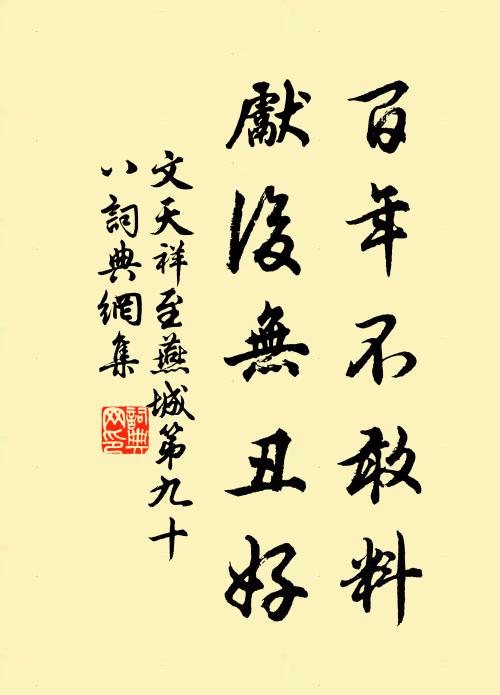 百年不敢料
獻後無丑好
文天祥至燕城第九十
八詞典網集
詞典網印